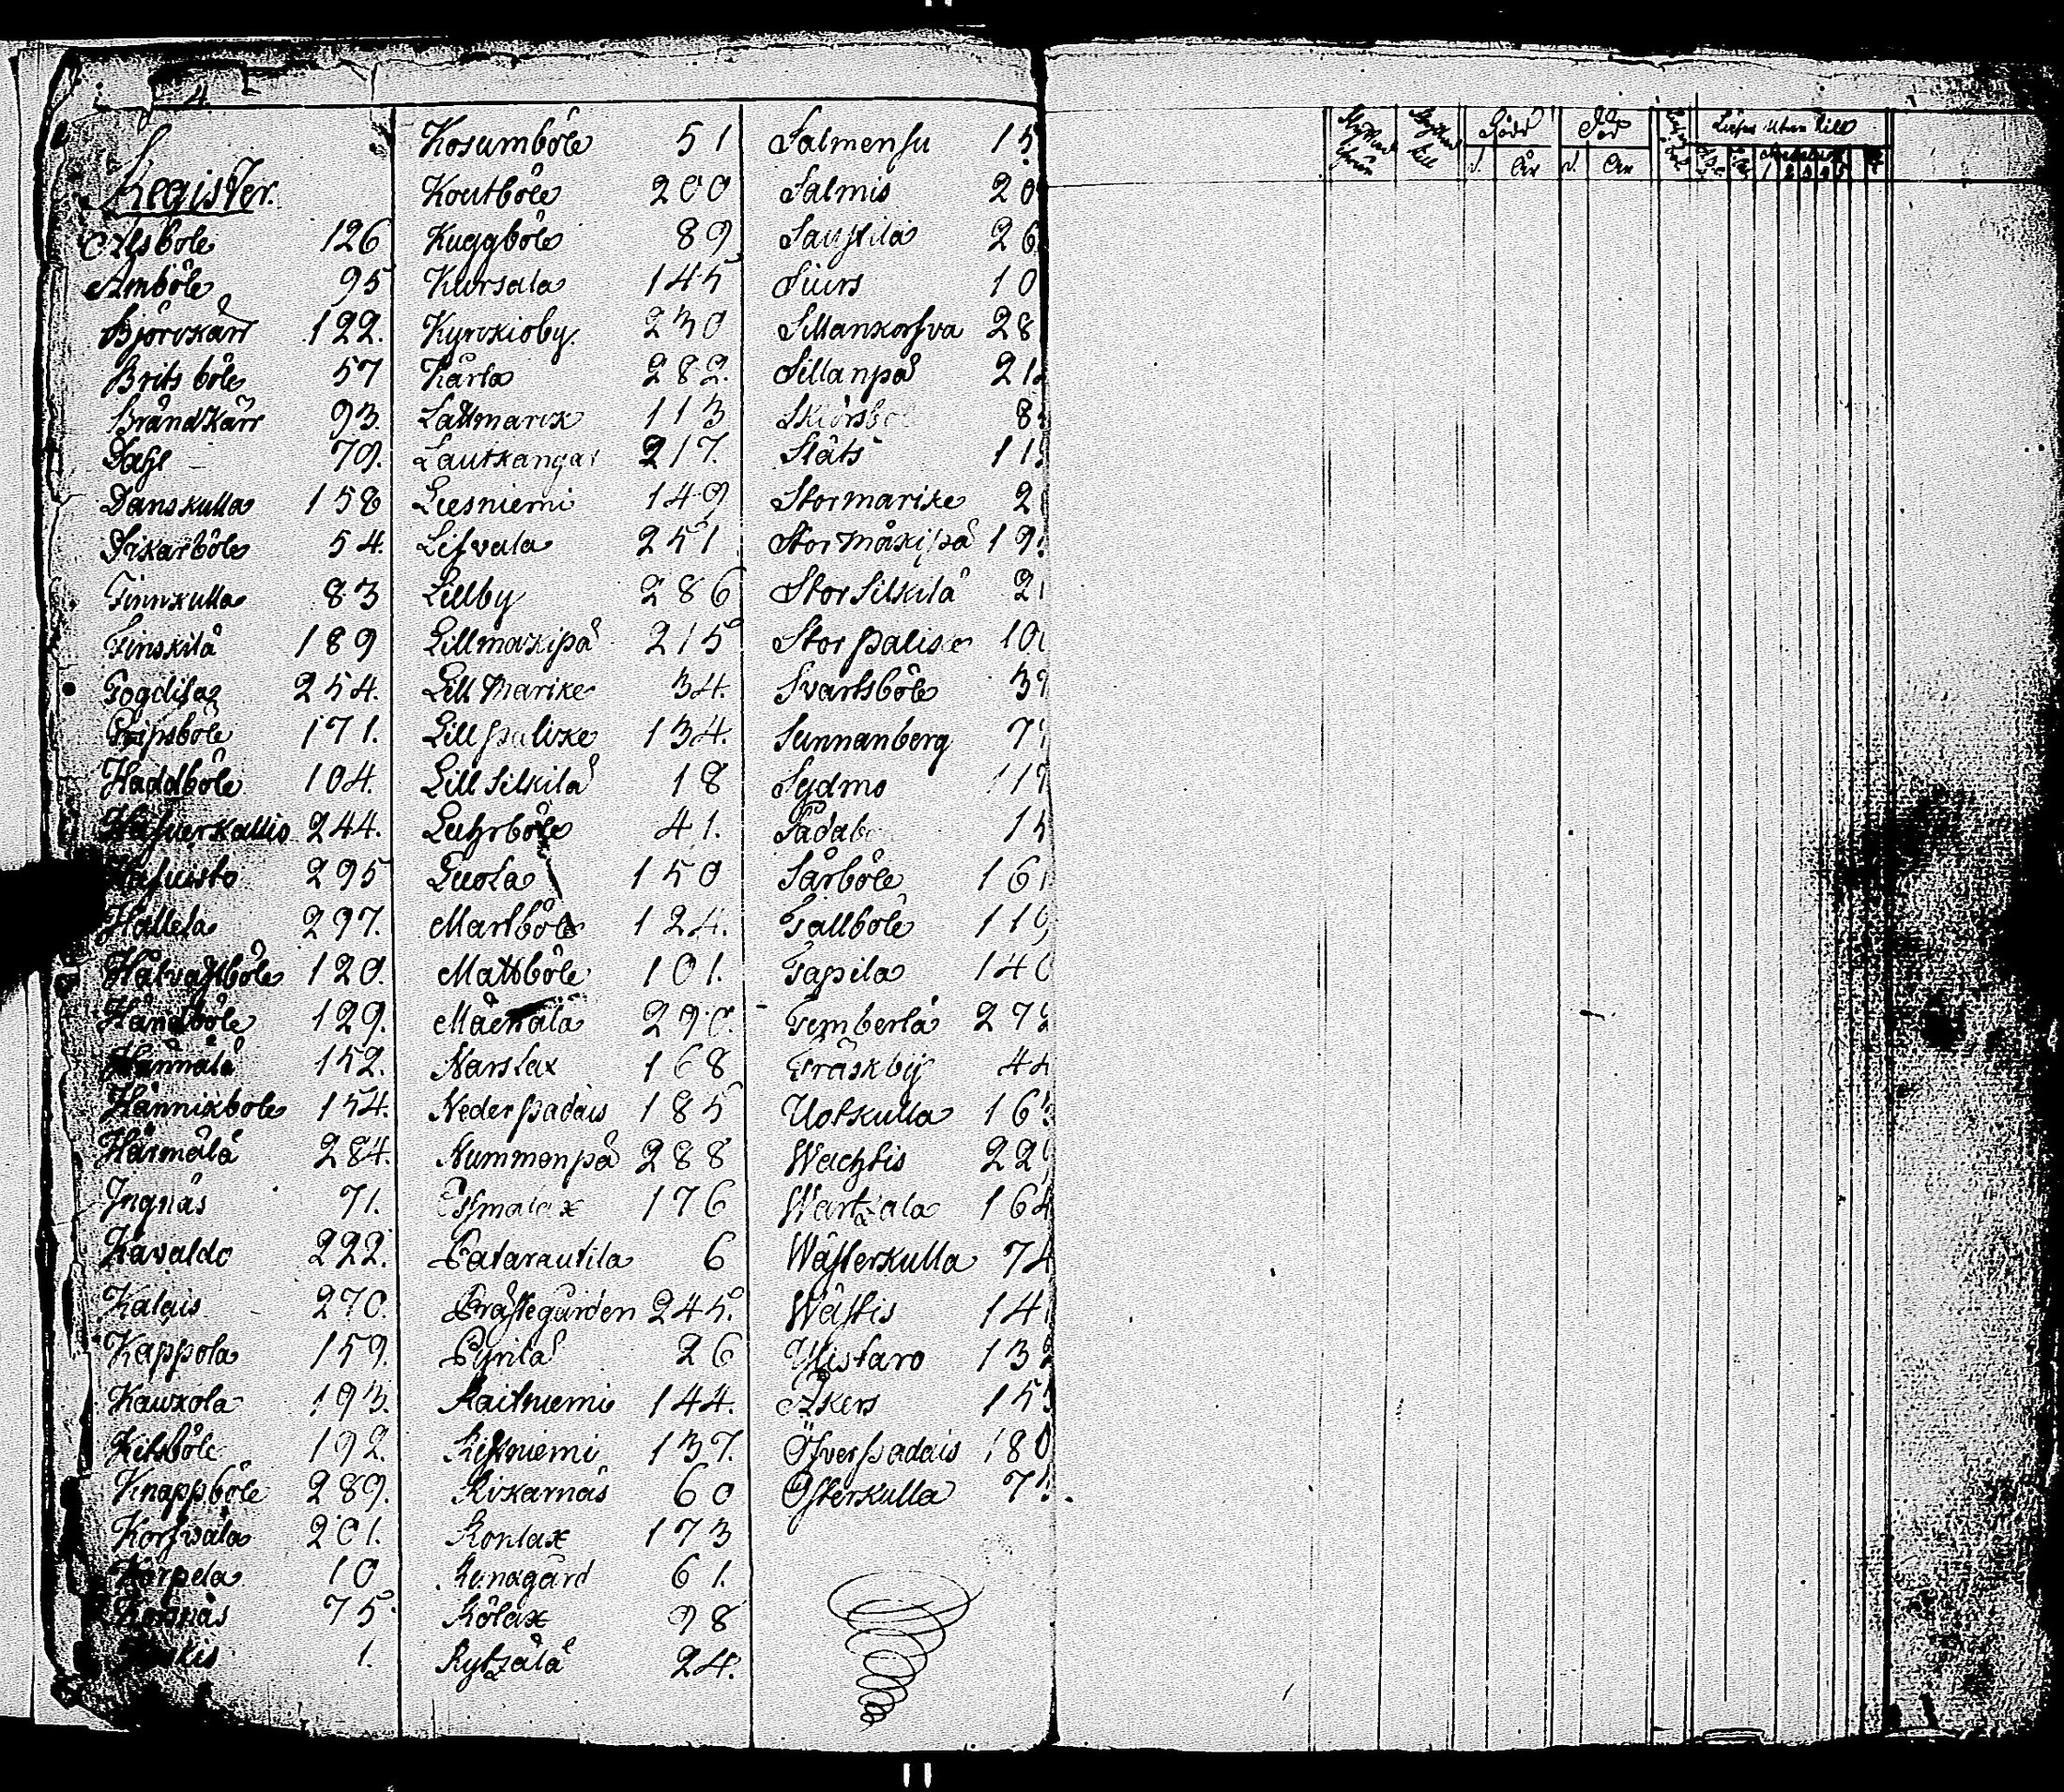 Register.
Alsböle 126
Amböle 95
Björckärr 122.
Brits böle 57
Brändkärr 93.
Dahl 79.
Danskulla 158
Dikarböle 54.
Finnkulla 83
Finskilä 189
Gogdila 254.
Gripsböle 171.
Haddböle 104.
244.
295
Hallela 297.
Halvastböle 120.
Handböle 129.
Hännälä 152.
Hännixböle 154.
Härmälä 284.
Ingnäs 71.
Kavaldo 222.
Kalais 270.
Kappola 159.
Kauxola 193.
Kitsböle 192.
Knappböle 289.
Korfvala 201.
Korpela 10
Korsnäs 75.
1.
Kosumböle 51
Koutböle 200
Kuggböle 89
Kursala 145
Kyrckioby 230
Kärla 282.
Lattmarck 113
Lautkangas 217.
Leesniemi 149
Lifvala 251
Lillby 286
Lillmäkipä 215
Lill Marike 34.
Lill palixe 134.
Lill Silkilä 18
Luhrböle 41.
Luota 150
Martböle 124.
Mattböle 101.
290.
Narslax 168
Neder padais 185
Nummenpä 288
176
Patarautila 6
Prästegården 245.
Pyrilä 26
Raitniemi 144.
Ristniemi 137.
Rixarnäs 60
Ronlax 173
61.
Rölax 98
Rytzälä 24.
Salmensu 15
Salmis 20
Saustila 26
Siurs 10
Sillankorfva 28
Sillanpä 21
8
Släts 11
Stormarike 2
Stor Mäkipä 19
Stor Silkilä 2
Stor palixe 10
Svartsböle 3
Sunnanberg 7
Sydmo 11
1
Särböle 16
Tallböle 11
Tapila 14
Temberlä 27
Träskby 4
Uotkulla 16
Wachtis 22
Wartzala 164
Wästerkulla 74
Wästis 14
Ylistaro 13
Åkers 15
Öfver padais 180
Österkulla 7
Född Död
d. År d. År